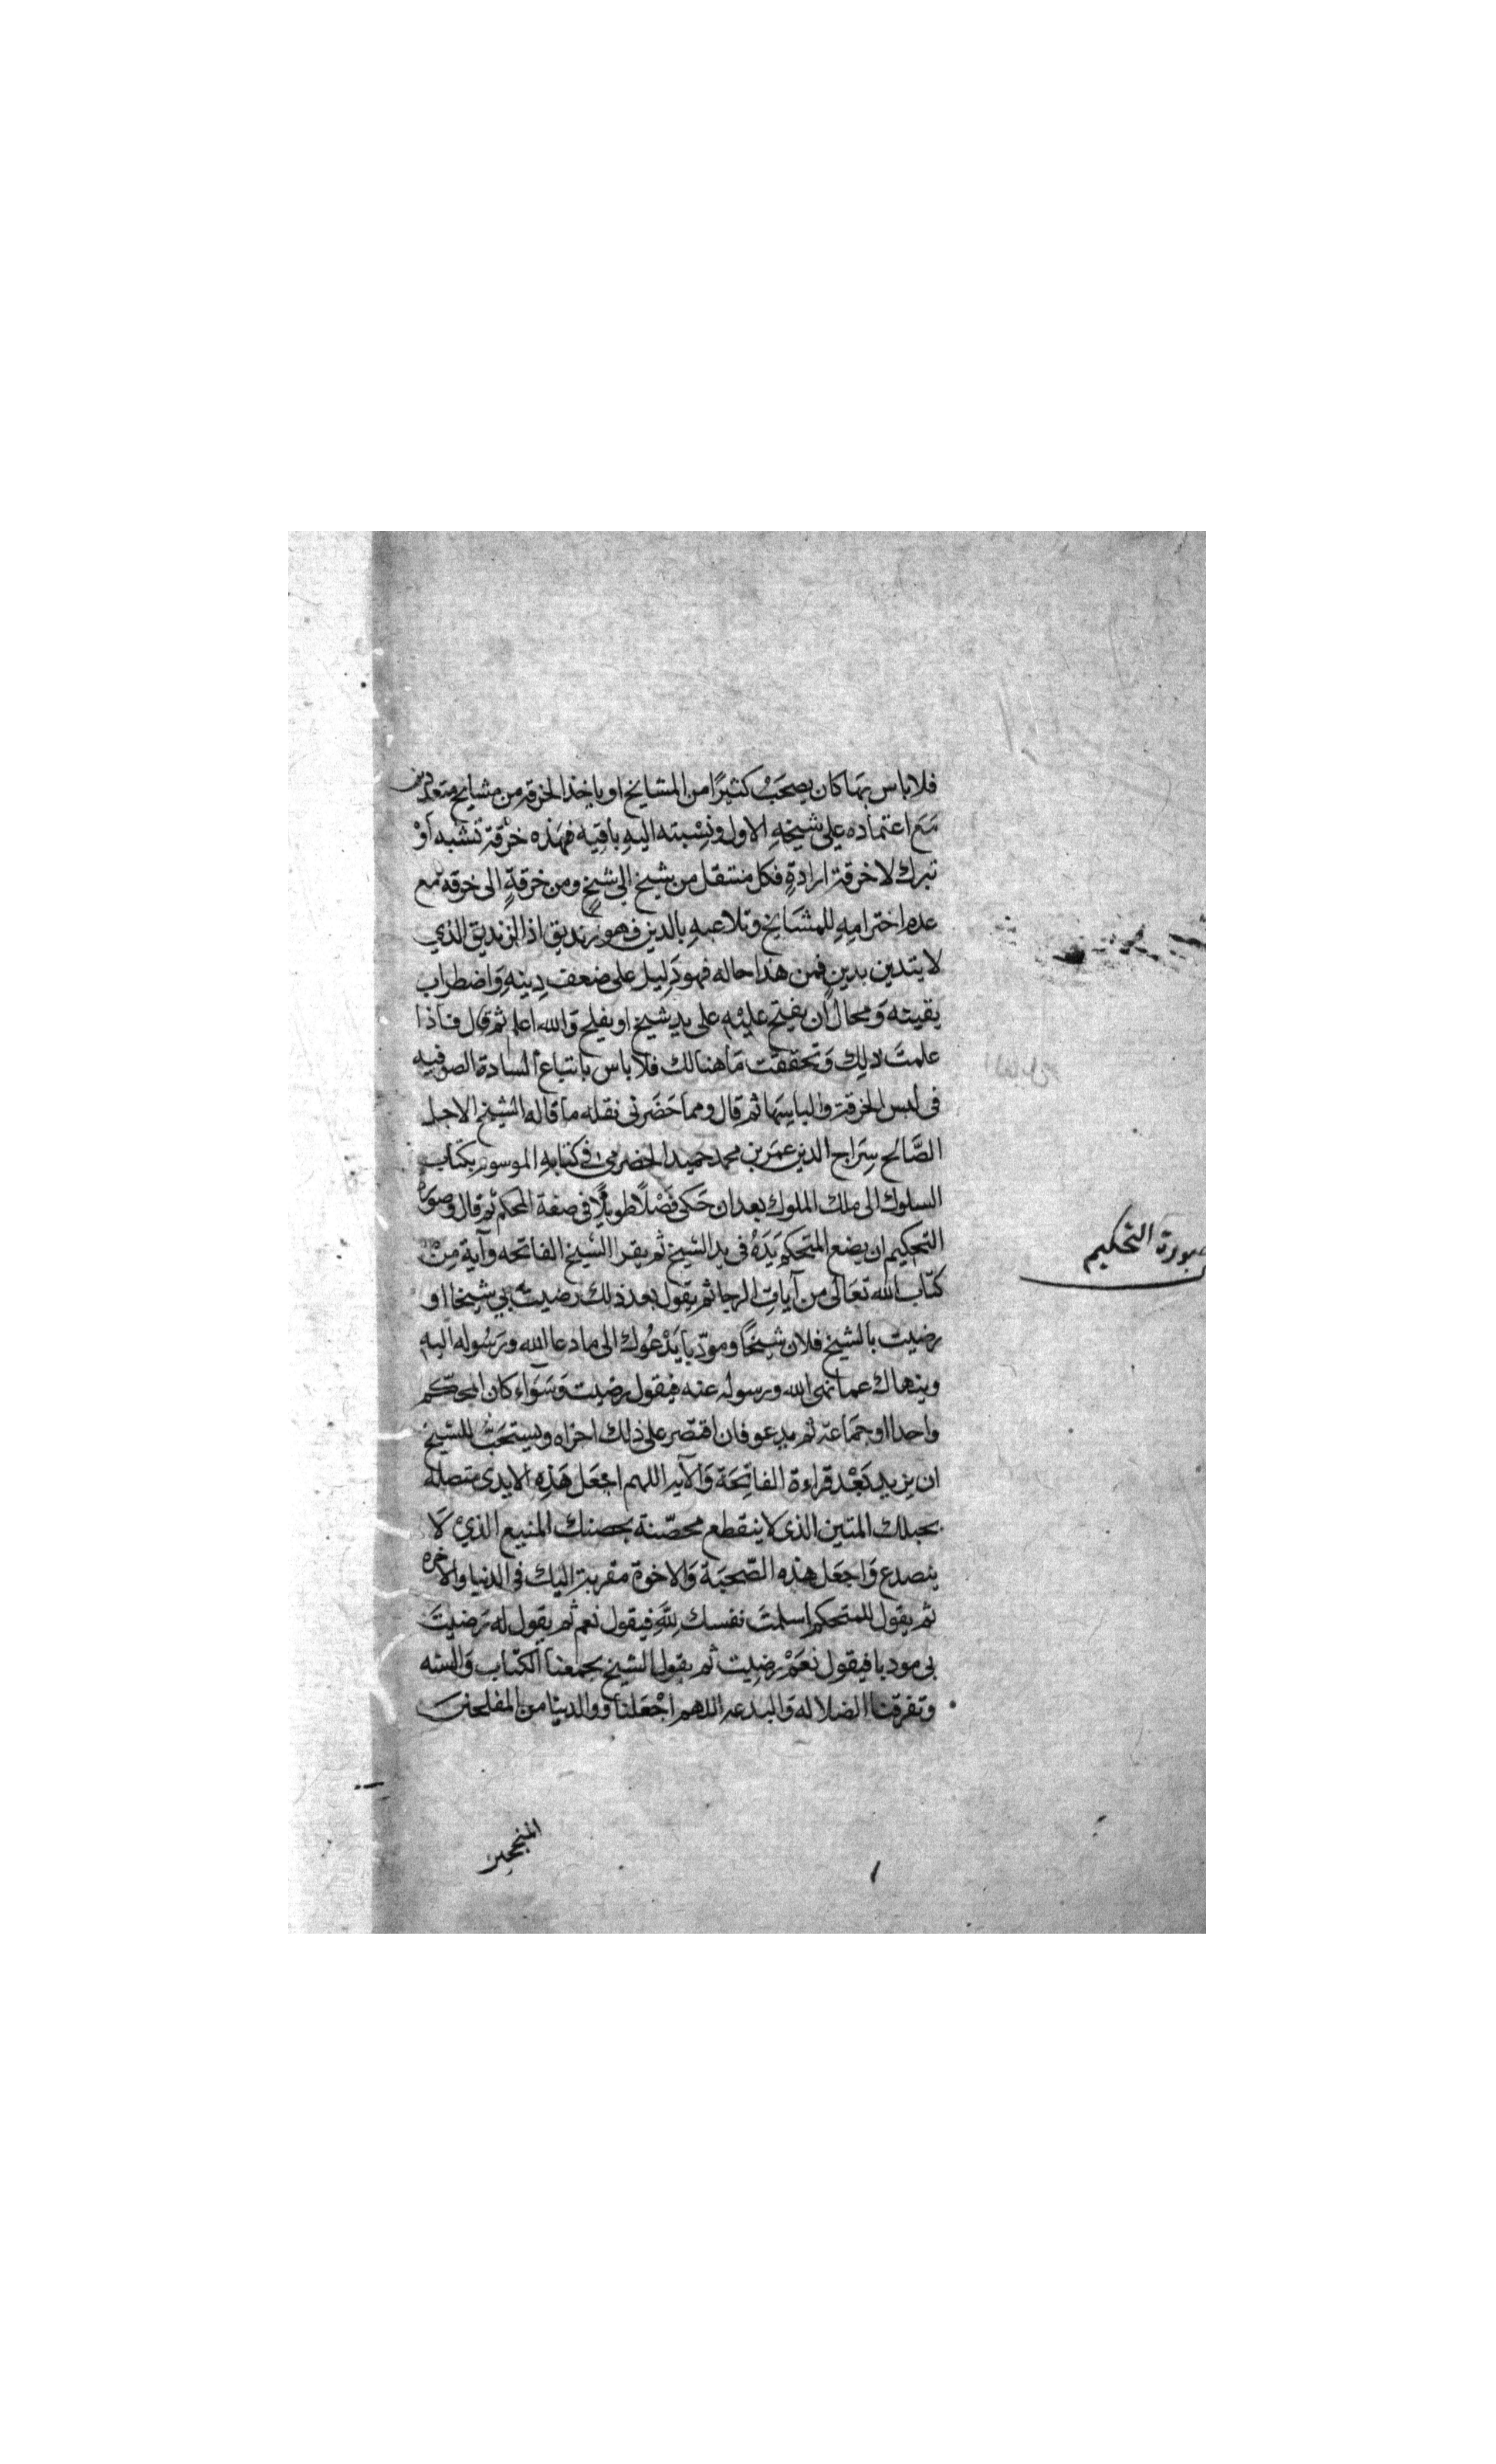 فلا باس بهما كان يصحَبُ كثيرًا من المشايخ او ياخذ الخرقة من مشايخ متعددين
مَعَ اعتماده على شيخهِ الاول ونِسْبته اليهِ باقيه فهَذه خرْقة تشبه اَوْ
تبرك لا خرقة ارادةٍ فكل منتقل من شيخ الى شيخٍ ومن خرقةٍ الى خرقه مع
عدم احترامِهِ للمشَايخ وتلاعبهِ بالدين فهو زنديق اذ الزنديق الذي
لا يتدين بدينٍ فمن هذا حاله فهو دَليل على ضعف دِينهِ وَاضطراب
يقينه وَمحال ان يفتح عليْه على يد شيخ او يفلح وَالله اعلم ثم قال فاذا
علمتَ ذلك وَتحققت مَا هنالك فلا باس باتباع السادة الصوفيه
فى لبس الخرقة والباسِهَا ثم قال ومما حَضَرنى نقله ما قاله الشيخ الاجل
الصَّالح سِرَاج الدين عمَر بن محمد حميد الحضرمى فى كتابهِ الموسوم بكتاب
السلوك الى ملك الملوك بعد ان حَكى فَصْلًا طويلًا فى صفة المحكم ثم قال وصوَرة
التحكيم ان يضع المتحكم يَدَهُ فى يد الشيخ ثم يقرا الشيخ الفاتحه وآية مِنْ
كتَاب الله تعَالى من آياتِ الرجا ثم يقول بعد ذلك رضيت بي شيخا او
رضيت بالشيخ فلان شيخًا ومودّبا يَدْعُوك الى ما دعا الله ورَسُوله اليهِ
وينهاك عما نهى الله ورسوله عنه فيقول رضيت وَسَوَاء كان المحكّم
واحدا او جمَاعة ثم يدعو فان اقتصَر على ذلك اجزاه ويستحَبُّ للشيخ
ان يزيد بَعْد قراءة الفاتِحَة وَالآيه اللهم اجعَل هَذِه الايدى متصله
بحبلك المتين الذى لا ينقطع محصّنة بحصنك المنيع الذيْ لَا
ينصدع وَاجعَل هذه الصّحبَة وَالاخوة مقربة اليك فى الدنيا والاخره
ثم يقول للمتحكم اسلمتَ نفسك لِلّهِ فيقول نعم ثم يقول له رَضيتَ
بى مودبا فيقول نعَمْ رضِيت ثم يقول الشيخ يجمعنا الكتاب وَالسنه
وتفرقنا الضلاله وَالبدعه اللهم اجْعَلنا ووالدينا من المفلحين
المنجحين
صورة التحكيم